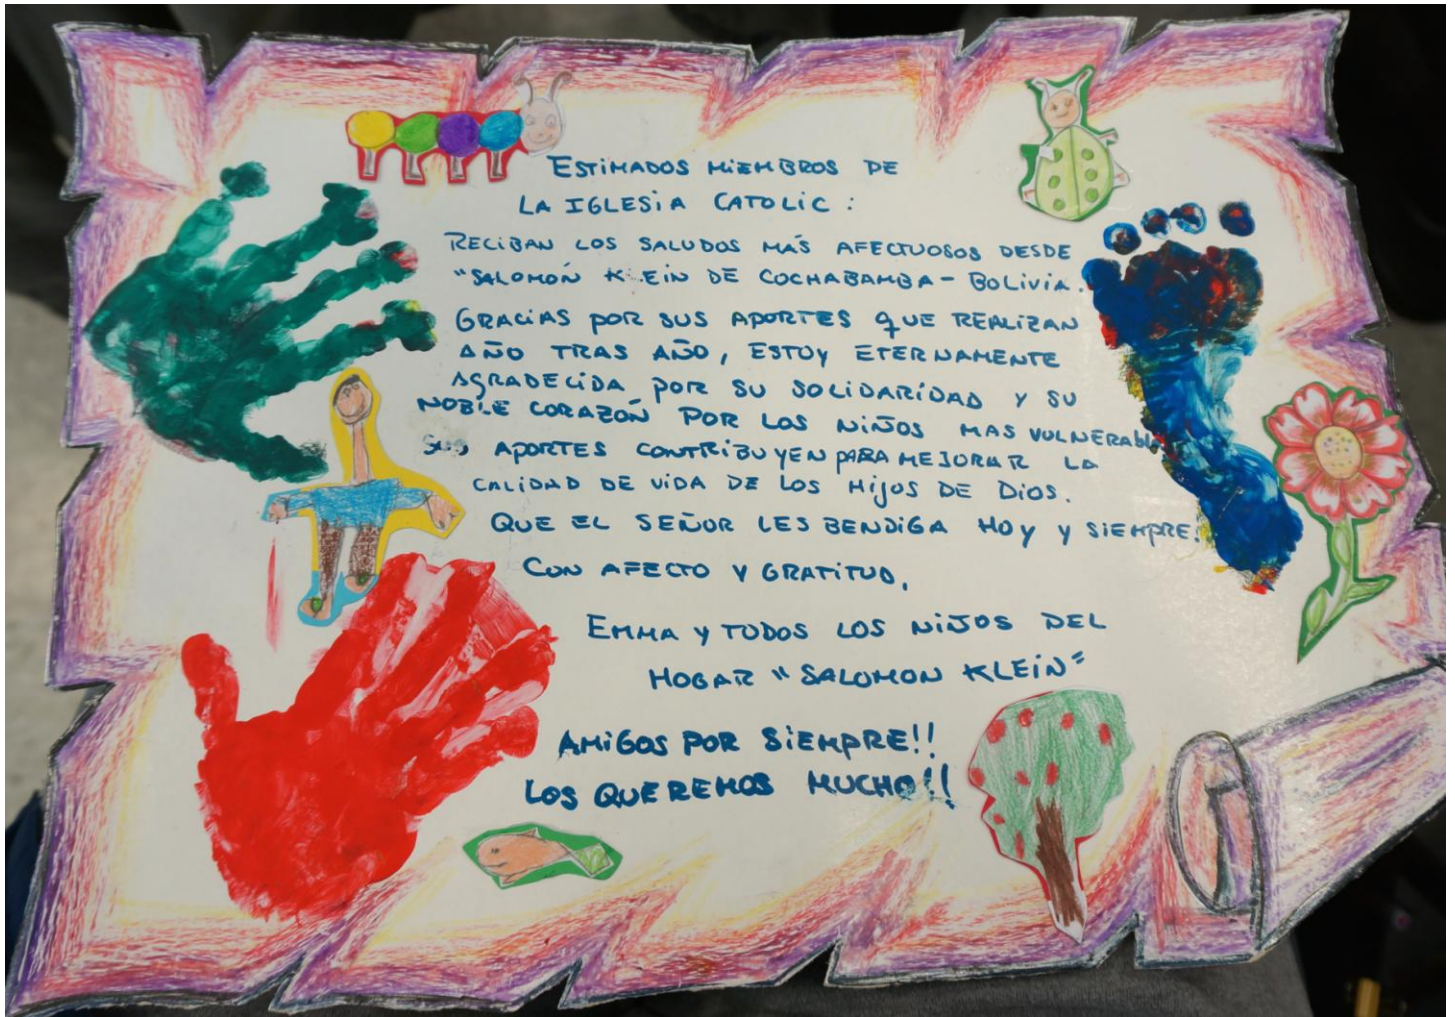 ESTIMADOS MIEMBROS DE
LA IGLESIA CATOLIC :
RECIBAN LOS SALUDOS MÁS AFECTUOSOS DESDE
"SALOMÓN KLEIN DE COCHABAMBA - BOLIVIA.
GRACIAS POR SUS APORTES QUE REALIZAN
AÑO TRAS AÑO, ESTOY ETERNAMENTE
AGRADECIDA POR SU SOLIDARIDAD Y SU
NOBLE CORAZÓN POR LOS NIÑOS MAS VULNERABLES
SUS APORTES CONTRIBUYEN PARA MEJORAR LA
CALIDAD DE VIDA DE LOS HIJOS DE DIOS.
QUE EL SEÑOR LES BENDIGA HOY Y SIEMPRE.
CON AFECTO Y GRATITUD,
EMMA Y TODOS LOS NIJOS DEL
HOGAR "SALOMON KLEIN"
AMIGOS POR SIEMPRE!!
LOS QUEREMOS MUCHO!!